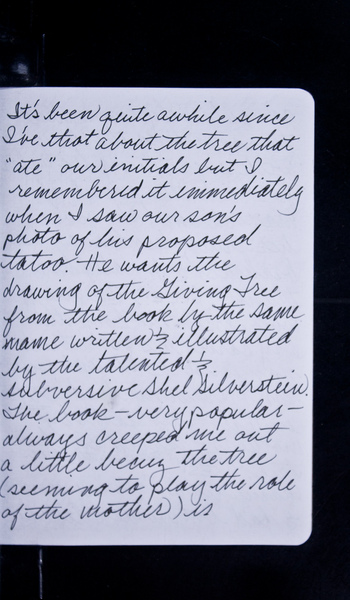 It's been quite awhile since
I've thot about the tree that
"ate" our initials but I
remembered it immediately
when I saw our son's
photo of his proposed
tatoo. He wants the
drawing of the Giving Tree
from the book by the same
name written & illustrated
by the talented &
subversive Shel Silverstein.
The book – very popular –
always creeped me out
a little becuz the tree
(seeming to play the role
of the mother) is